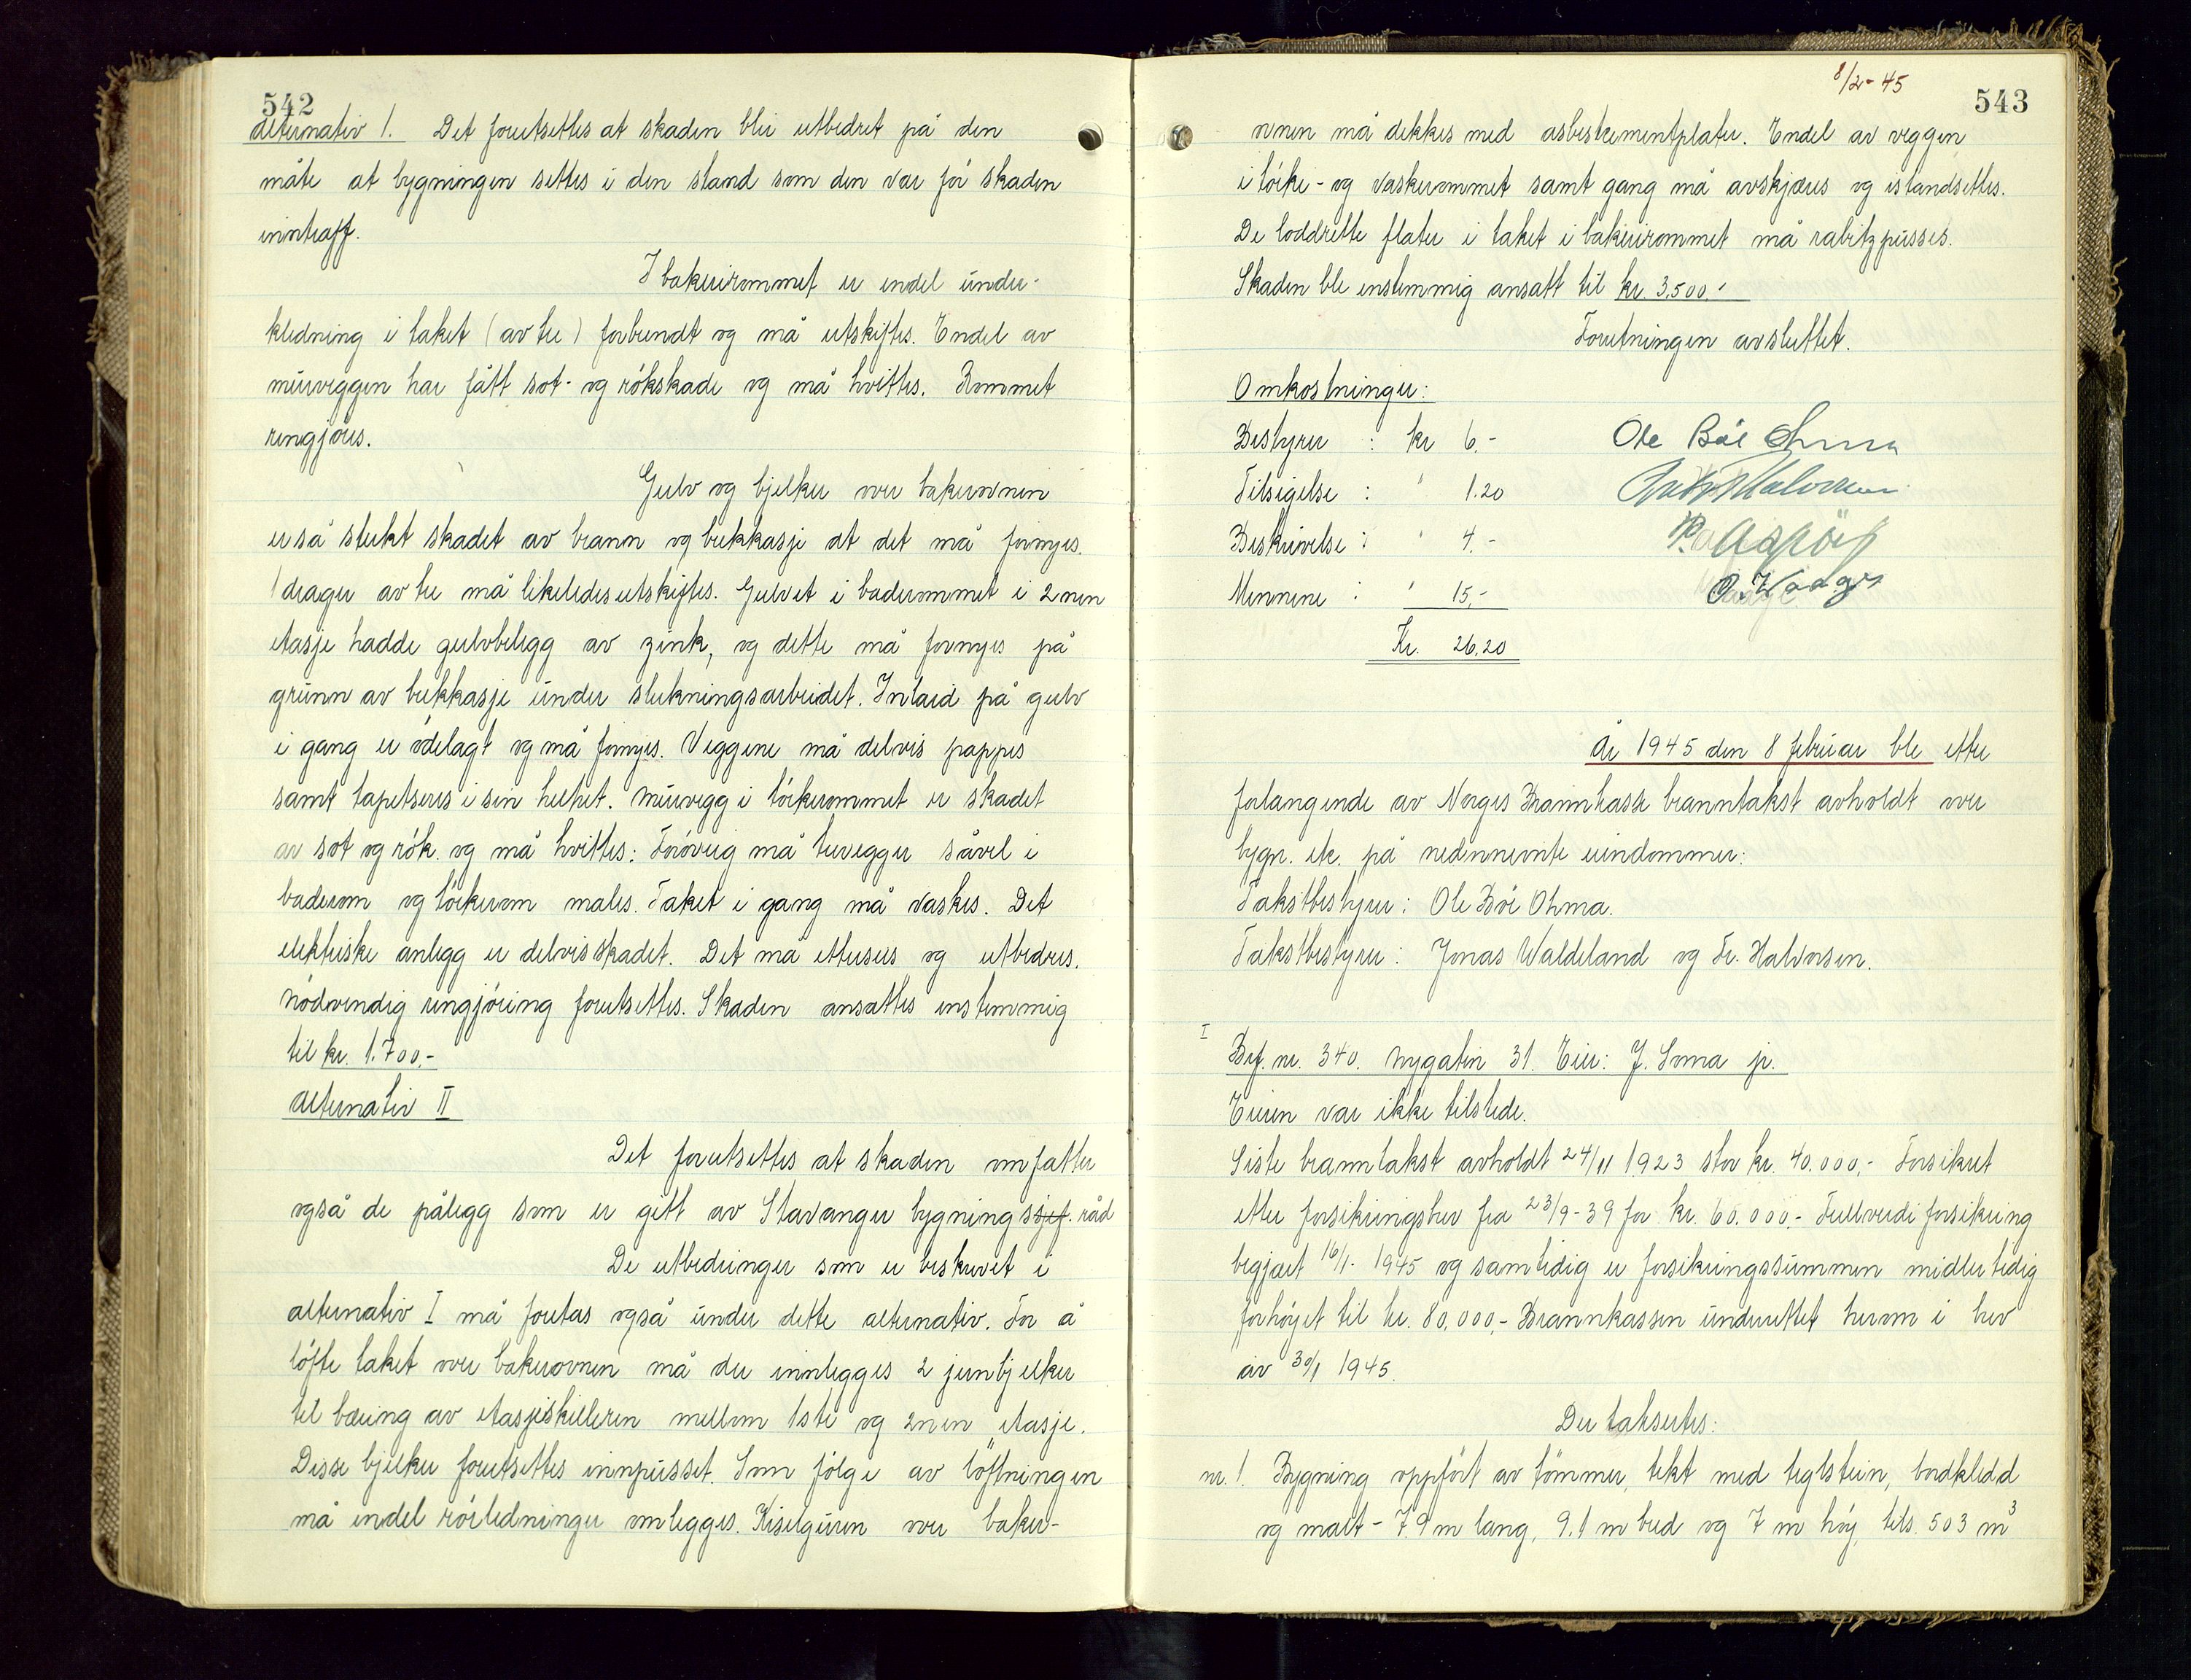 542
alternativ 1. Det forutsettes at skaden blir utbedret på den
måte at bygningen settes i den stand som den var för skaden
inntraff.
I bakerirommet er endel under-
kledning i taket (av tre) forbrendt og må utskiftes. Endel av
murveggen har fått sot- og rökskade og må hvittes. Rommet
rengjöres.
Gulv og bjelker over bakerovnen
er så sterkt skadet av brann og brekkasje at det må fornyes.
1 drager av tre må likeledes utskiftes. Gulvet i baderommet i 2nen
etasje hadde gulvbelegg av zink, og dette må fornyes på
grunn av brekkasje under slukningsarbeidet. Inlaid på gulv
i gang er ödelagt og må fornyes. Veggene må delvis pappes
samt tapetseres i sin helhet. Murvegg i törkerommet er skadet
av sot og rök og må hvittes: Foröverig må treveggur såvel i
baderom og törkerom males. Taket i gang må vaskes. Det
elektriske anlegg er delvis skadet. Det må ettersees og utbedres.
Nödvendig rengjöring forutsettes. Skaden ansattes enstemmig
til kr. 1.700,-
Alternativ II
Det forutsettes at skaden omfatter
også de pålegg som er gitt av Stavanger bygningssjef. råd
De utbedringer som er beskrevet i
alternativ I må foretas også under dette alternativ. For å
löfte taket over bakerovnen må der innlegges 2 jernbjelker
til bæring av etasjeskilleren mellom 1ste og 2nen etasje.
Disse bjelker forutsettes innpusset. Som fölge av löftningen
må endel rörledninger omlegges. Kiselguren over baker-
8/2-45
543
ovnen må dekkes med asbestcementplater. Endel av veggen
i törke- og vaskerommet samt gang må avskjæres og istandsettes.
De loddrette flater i taket i bakerirommet må rabitzpusses.
Skaden ble enstemmig ansatt til kr. 3.500.-
Forretningen avsluttet.
Omkostninger:
Bestyrer : kr 6.-
Tilsigelse : " 1.20
Beskrivelse : " 4.-
Mennene : " 15,-
Kr. 26.20
Ole Böe Ohma
Halvorsen
P. Aspöy
O. Kaage
År 1945 den 8 februar ble etter
forlangende av Norges Brannkasse branntakst avholdt over
bygn. etc. på nedennevnte eiendommer:
Takstbestyrer: Ole Böe Ohma.
Takstbestyrer: Jonas Waldeland og Fr. Halvorsen.
I
Brf. nr. 340. Nygaten 31. Eier: J. Soma jr.
Eieren var ikke tilstede.
Siste branntakst avholdt 24/11 1923 stor kr. 40.000,- Forsikret
etter forsikringsbrev fra 23/9-39 for kr. 60.000,- Fullverdiforsikring
begjært 16/1. 1945 og samtidig er forsikringssummen midlertidig
forhöyet til kr. 80.000,- Brannkassen underrettet herom i brev
av 30/1 1945.
Der takseres:
nr. 1. Bygning oppfört av tömmer, tekt med teglstein, bordkledd
og malt - 7.9 m lang, 9.1 m bred og 7 m höy, tils. 503 m3